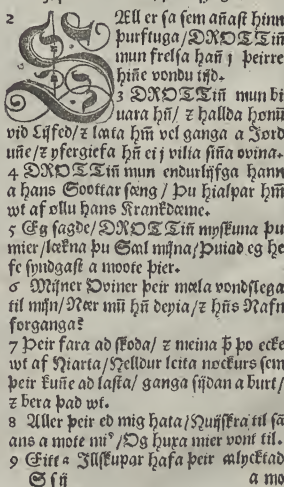 2 SÆll er sa sem añast hinn
þurftuga/DROTTiñ
mun frelsa hañ j þeirre
hiñe vondu tijd.
3 DROTTiñ mun bi
uara hñ/ ⁊ hallda honū
vid Lijfed/⁊ lata hm̃ vel ganga a Jord
uñe/⁊ yfergiefa hñ ei j vilia siña ovina.
4 DROTTiñ mun endurlijfga Hann
a hans Soottar sæng / Þu hialpar hm̃
wt af øllu hans Krankdæme.
5 Eg sagde/DROTTiñ myskuna þu
mier/lækna þu Sæl mijna/Þuiad eg he
fe syndgast a moote þier.
6 Mijner Oviner þeir mæla vondslega
til mijn/Nær mū hñ deyia/⁊ hñs Nafn
forganga?
7 Þeir fara ad skoda/ ⁊ meina þ̄ þo ecke
wt af Hiarta/Helldur leita nockurs sem
þeir kuñe ad lasta/ ganga sijdan a burt/
⁊ bera þad wt.
8 Aller þeir ed mig hata/Huijskra til sā
ans a mote mi⁹/Og huxa mier vont til.
9 Eitt a Illskupar hafa þeir alycktad
S s ij a mo